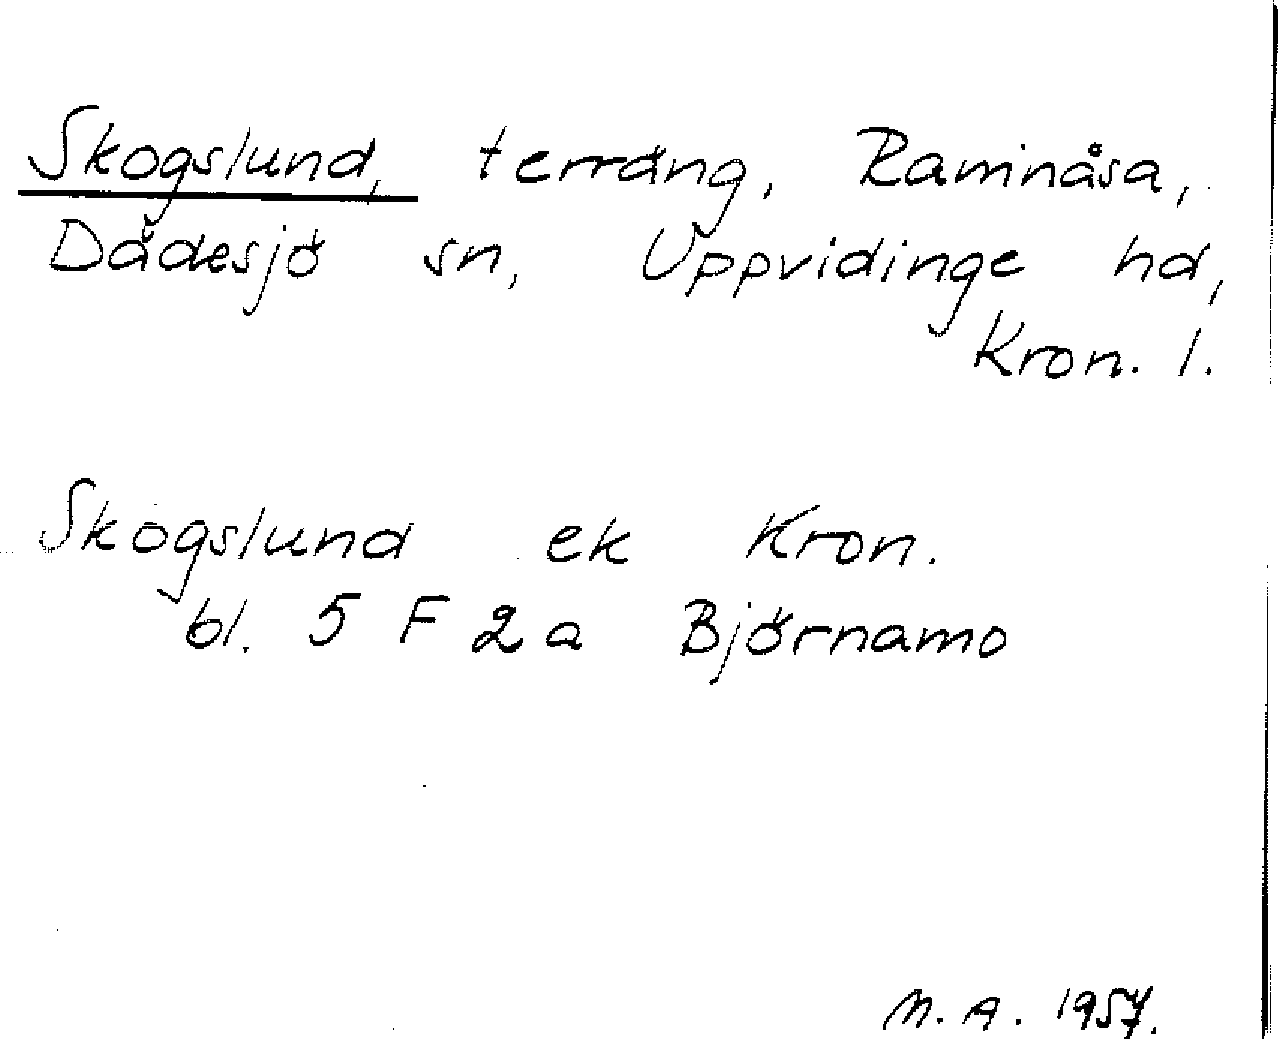 Skogslund, terräng, Ramnåsa,
Dädesjö sn, Uppvidinge hd,
Kron. l.
Skogslund ek Kron.
bl. 5 F 2a Björnamo
M. A. 1957.